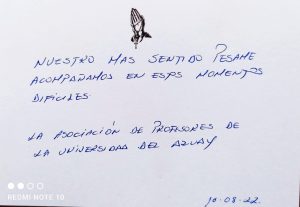 NUESTRO MAS SENTIDO PESAME
ACOMPAÑAMOS EN ESTOS MOMENTOS
DIFÍCILES.
LA ASOCIACIÓN DE PROFESORES DE
LA UNIVERSIDAD DEL AZUAY
90.08.22.
REDMI NOTE 10